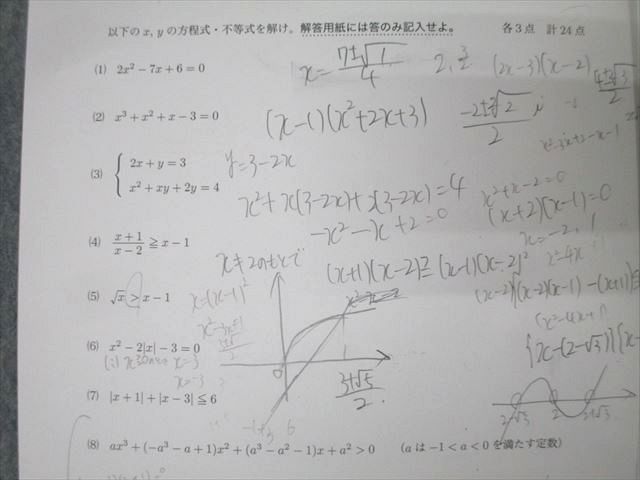 以下の x, y の方程式・不等式を解け。解答用紙には答のみ記入せよ。 各3点 計24点
(1) 2x² − 7x + 6 = 0
x = (7±√1)/4 2, 3/2 (2x−3)(x−2)
(4±2√3)/2
(2) x³ + x² + x − 3 = 0
(x−1)(x²+2x+3) (−2±2√2 i)/2
(3) { 2x + y = 3
x² + xy + 2y = 4
y = 3−2x
x² + x(3−2x) + 2(3−2x) = 4 x²+x−2=0
−x² − x + 2 = 0 (x+2)(x−1)=0
x = −2, 1
(4) (x+1)/(x−2) ≧ x − 1
x ≠ 2のもとで (x+1)(x−2) ≧ (x−1)(x−2)²
(5) √x > x − 1 x = (x−1)²
(x−2){(x−2)(x−1) − (x+1)}
(x²−4x+1)
{x−(2−√3)}{x−
(6) x² − 2|x| − 3 = 0
(i) x≧0のとき x=3
0 1 (3+√5)/2
(7) |x + 1| + |x − 3| ≦ 6
2−√3 2 2+√3
−1+3 6
(8) ax³ + (−a³ − a + 1)x² + (a³ − a² − 1)x + a² > 0 (a は −1 < a < 0 を満たす定数)